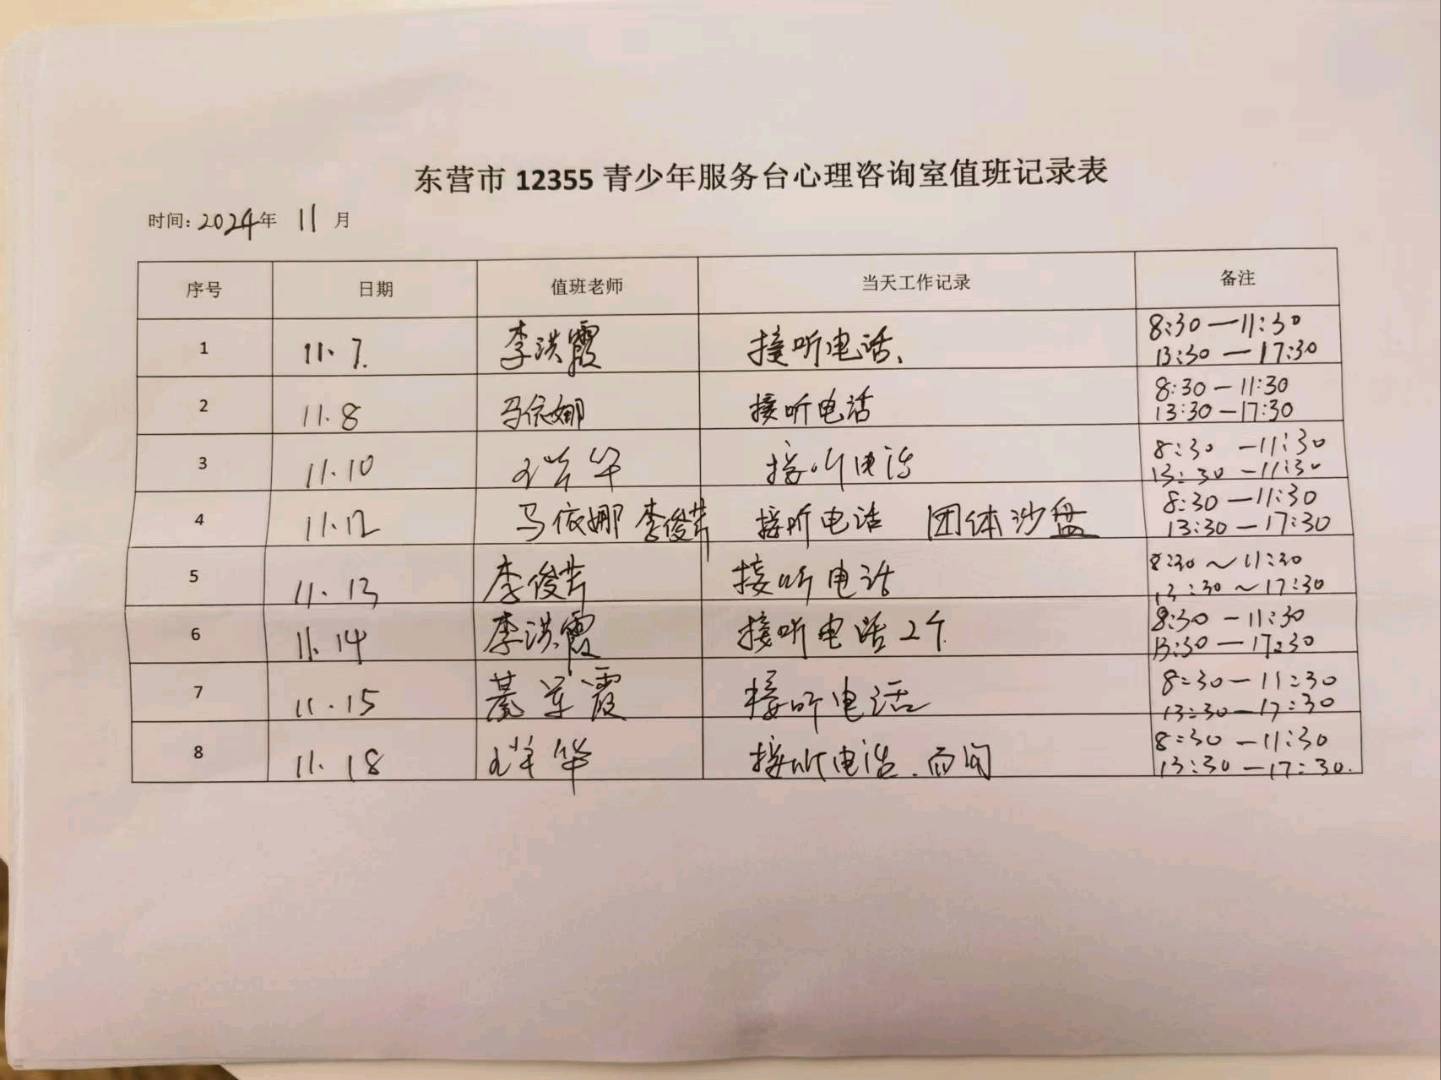 东营市 12355 青少年服务台心理咨询室值班记录表
时间: 2024年 11 月
序号 日期 值班老师 当天工作记录 备注
1 11.7. 李洪霞 接听电话、 8:30—11:30
13:30—17:30
2 11.8 马依娜 接听电话 8:30—11:30
13:30—17:30
3 11.10 华 接听电话 8:30—11:30
13:30—11:30
4 11.12 马依娜 李俊芹 接听电话 团体沙盘 8:30—11:30
13:30—17:30
5 11.13 李俊芹 接听电话 8:30～11:30
13:30～17:30
6 11.14 李洪霞 接听电话2个 8:30—11:30
13:30—17:30
7 11.15 綦军霞 接听电话 8:30—11:30
13:30—17:30
8 11.18 华 接听电话. 面询 8:30—11:30
13:30—17:30.